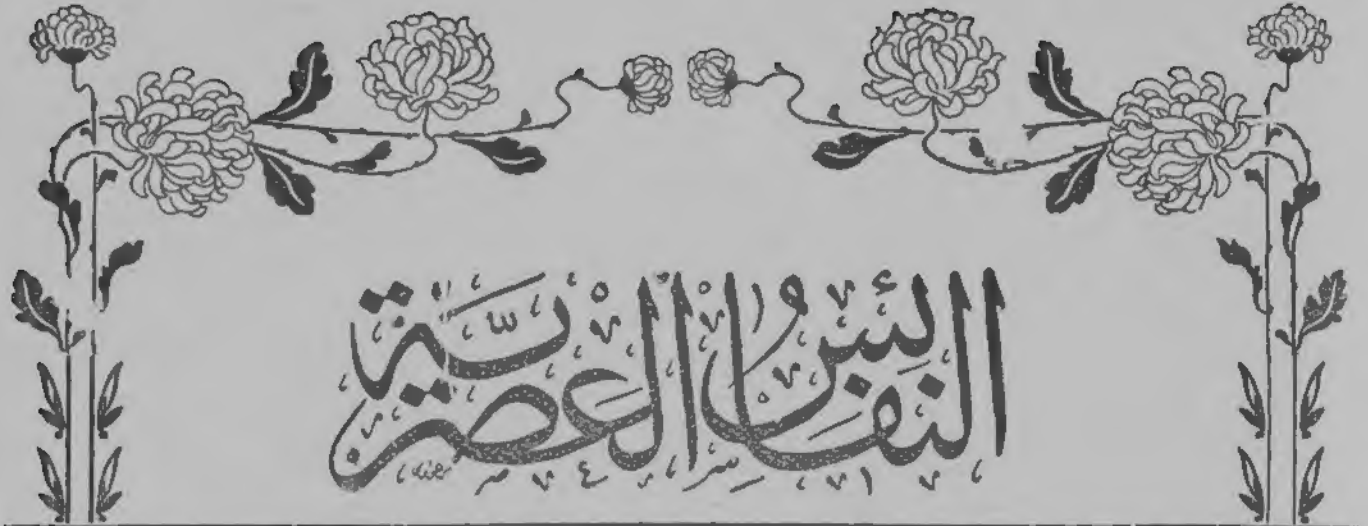 النفائس العصرية